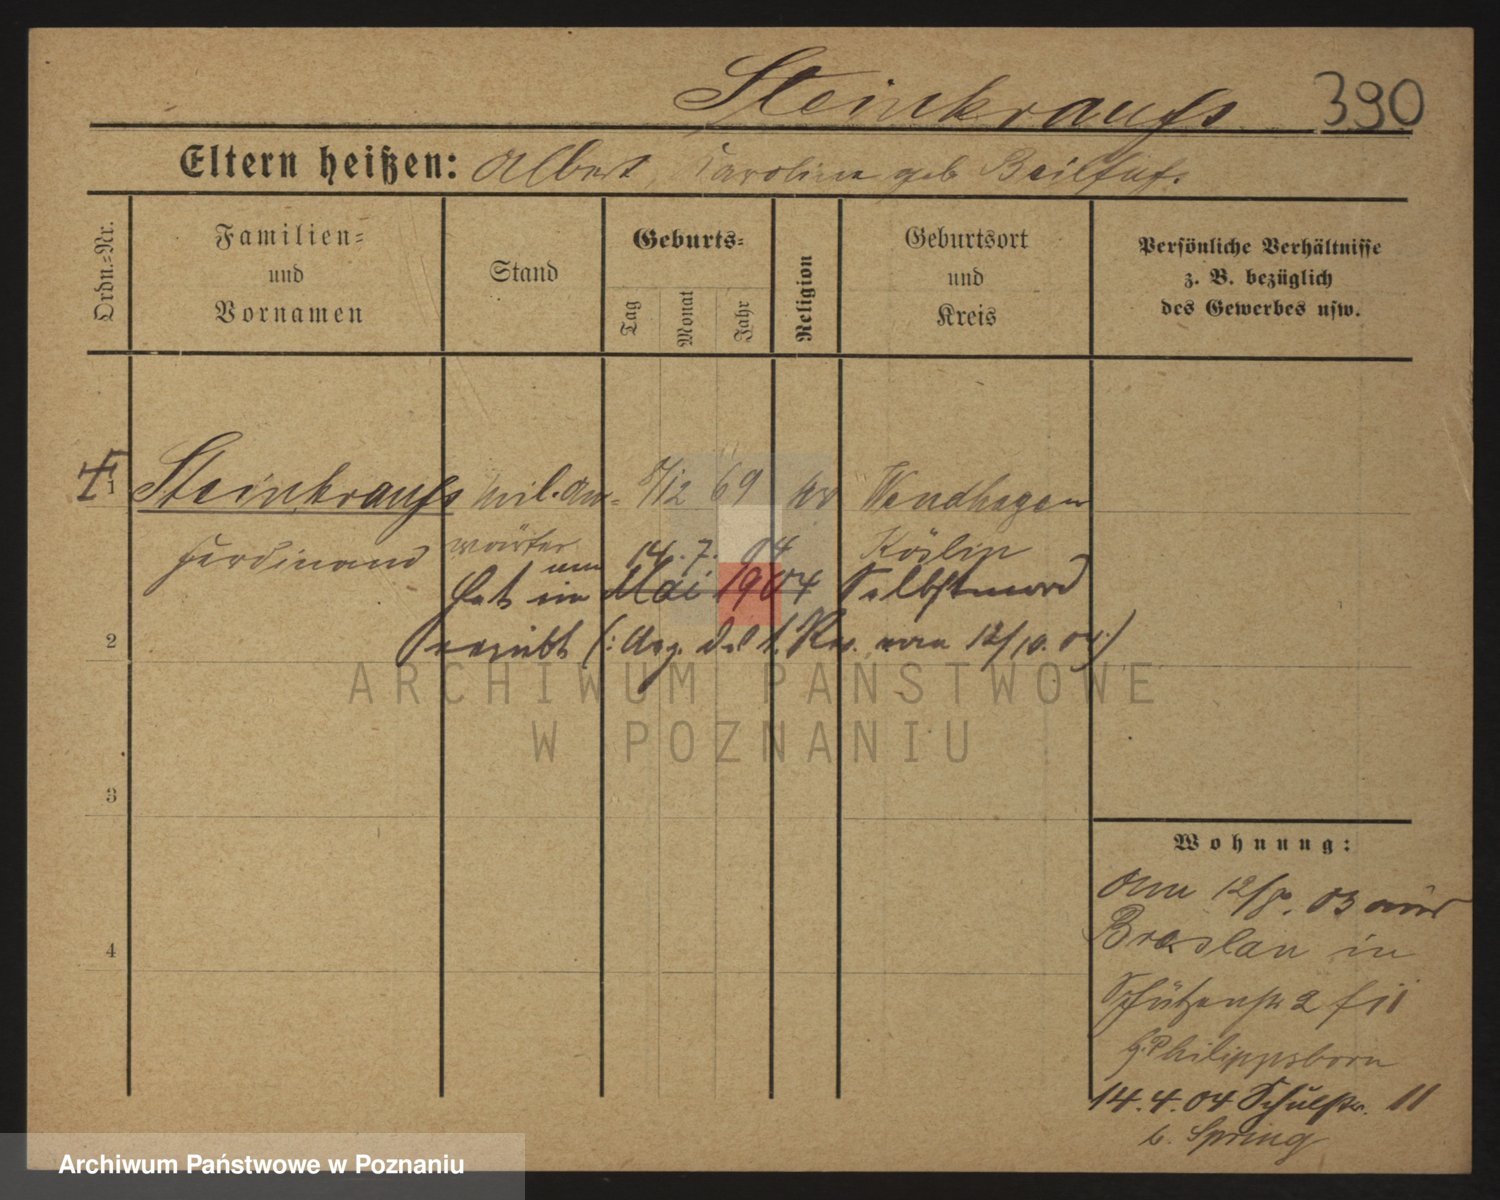 Steinkrauss 390
Eltern heißen: Albert, Karoline geb
Ordn.-Nr.
Familien-
und
Vornamen
Stand
Geburts-
Tag
Monat
Jahr
Religion
Geburtsort
und
Kreis
Persönliche Verhältnisse
z. B. bezüglich
des Gewerbes usw.
1 Steinkrauss Mil. An- 8/12 69 ev Wendhagen
Ferdinand wärter 14. 7. 04 Köslin
am
hat im Mai 1904 Selbstmord
2 verübt (: des 1. Rev. vom 12/10. 04:)
ARCHIWUM PAŃSTWOWE
W POZNANIU
3
4
Wohnung:
12/8. 03 aus
Breslau in
Schützenstr 2
Philippsborn
14. 4. 04 Schulstr. 11
b. Spring
Archiwum Państwowe w Poznaniu